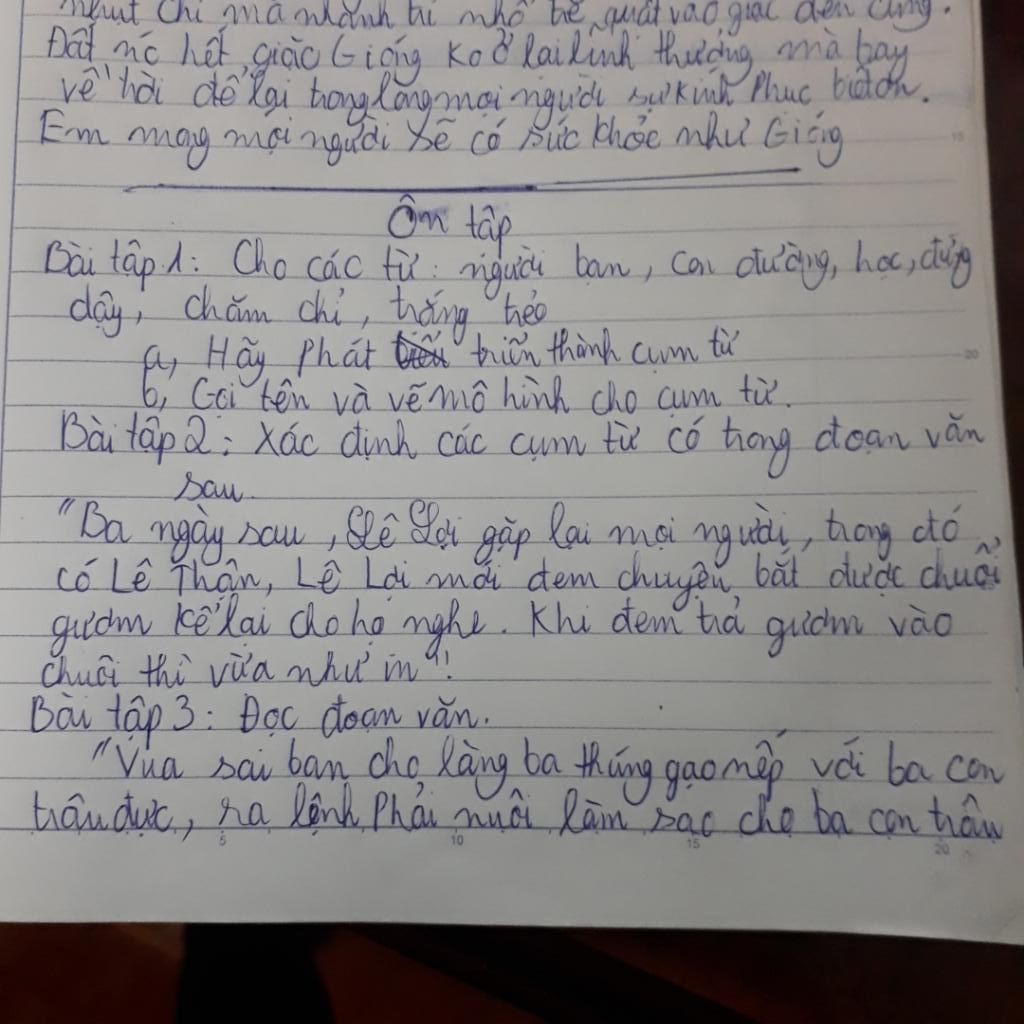 chí mà nhành tre quất vào giặc đến cùng.
Đất nc hết giặc Gióng ko ở lại lĩnh thưởng mà bay
về trời để lại trong lòng mọi người sự kính phục biết ơn.
Em mog mọi người sẽ có sức khỏe như Gióng
Ôn tập
Bài tập 1: Cho các từ: người bạn, con đường, học, đứng
dậy, chăm chỉ, trắng trẻo
a, Hãy phát triển thành cụm từ
b, Gọi tên và vẽ mô hình cho cụm từ.
Bài tập 2: Xác định các cụm từ có trong đoạn văn
sau
"Ba ngày sau, Lê Lợi gặp lại mọi người, trong đó
có Lê Thận, Lê Lợi mới đem chuyện bắt được chuôi
gươm kể lại cho họ nghe. Khi đem tra gươm vào
chuôi thì vừa như in"!
Bài tập 3: Đọc đoạn văn.
"Vua sai ban cho làng ba thúng gạo nếp với ba con
trâu đực, ra lệnh phải nuôi làm sao cho ba con trâu
5 10 15 20
15
20